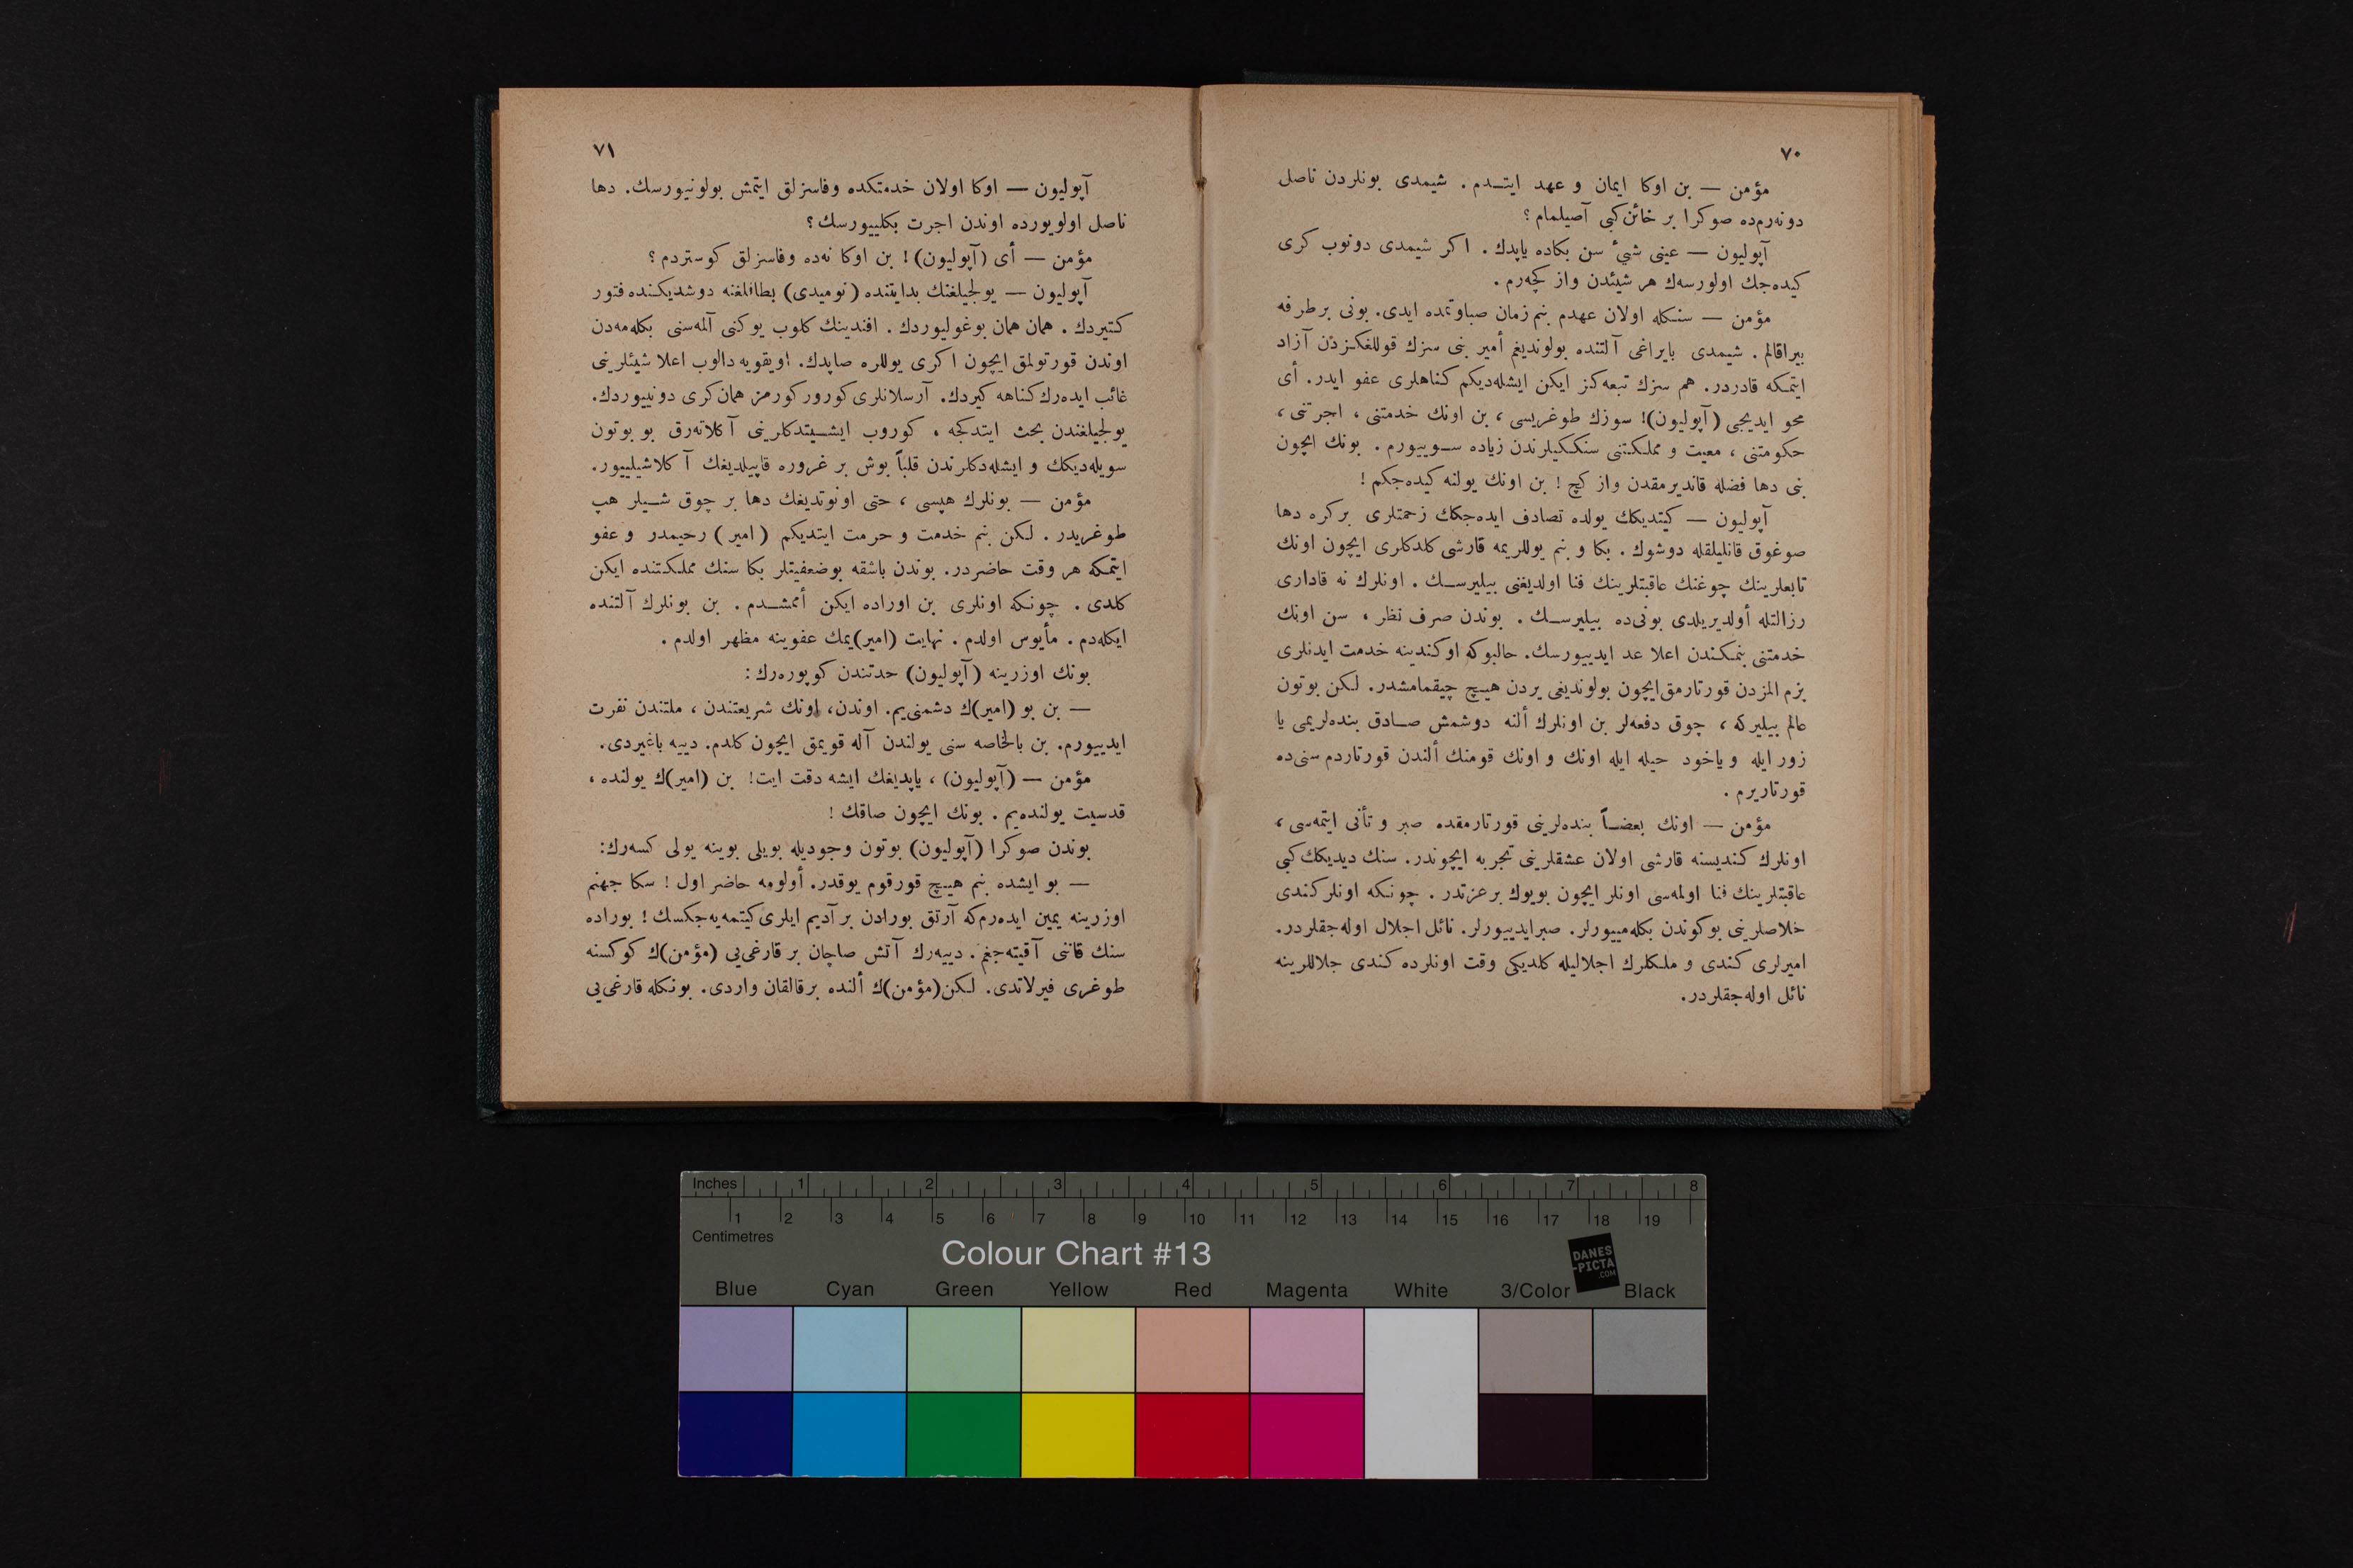 ٧٠
مؤمن — بن اوكا ايمان و عهد ايتـدم . شيمدى بونلردن ناصل
دونه‌رم‌ده صوكرا بر خائن كبى آصيلمام ؟
آپوليون — عينى شيئ سن بكاده ياپدك . اكر شيمدى دونوب كرى
كيده‌جك اولورسه‌ك هر شيئدن واز كچه‌رم .
مؤمن — سنكله اولان عهدم بنم زمان صباوتمده ايدى. بونى برطرفه
بيراقالم . شيمدى بايراغى آلتنده بولونديغم أمير بنى سزك قوللغكزدن آزاد
ايتمكه قادردر. هم سزك تبعه‌كز ايكن ايشله‌ديكم كناهلرى عفو ايدر. أى
محو ايديجى (آپوليون)! سوزك طوغريسى ، بن اونك خدمتنى ، اجرتنى ،
حكومتنى ، معيت و مملكتنى سنككيلرندن زياده سـوييورم . بونك ايچون
بنى دها فضله قانديرمقدن واز كچ ! بن اونك يولنه كيده‌جكم !
آپوليون — كيتديكك يولده تصادف ايده‌جكك زحمتلرى بركره دها
صوغوق قانليلقله دوشوك . بكا و بنم يوللريمه قارشى كلدكلرى ايچون اونك
تابعلرينك چوغنك عاقبتلرينك فنا اولديغنى بيليرسـك . اونلرك نه قادارى
رزالتله أولديريلدى بونى‌ده بيليرسـك . بوندن صرف نظر ، سن اونك
خدمتنى بنمكندن اعلا عد ايدييورسك. حالبوكه اوكندينه خدمت ايدنلرى
بزم المزدن قورتارمق ايچون بولونديغى يردن هيچ چيقمامشدر. لكن بوتون
عالم بيليركه ، چوق دفعه‌لر بن اونلرك ألنه دوشمش صـادق بنده‌لريمى يا
زور ايله و ياخود حيله ايله اونك و اونك قومنك ألندن قورتاردم سنى‌ده
قورتاريرم .
مؤمن — اونك بعضـاً بنده‌لرينى قورتارمقده صبر و تأنى ايتمه‌سى ،
اونلرك كنديسنه قارشى اولان عشقلرينى تجربه ايچوندر. سنك ديديكك كبى
عاقبتلرينك فنا اولمه‌سى اونلر ايچون بويوك برعزتدر . چونكه اونلر كندى
خلاصلرينى بوكوندن بكله‌مييورلر. صبرايدييورلر. نائل اجلال اوله‌جقلردر.
اميرلرى كندى و ملكلرك اجلاليله كلديكى وقت اونلرده كندى جلاللرينه
نائل اوله‌جقلردر.
٧١
آپوليون — اوكا اولان خدمتكده وفاسزلق ايتمش بولونيورسك. دها
ناصل اولويورده اوندن اجرت بكلييورسك ؟
مؤمن — أى (آپوليون)! بن اوكا نه‌ده وفاسزلق كوستردم ؟
آپوليون — يولجيلغنك بدايتنده (نوميدى) بطاقلغنه دوشديكنده فتور
كتيردك . همان همان بوغوليوردك . افندينك كلوب يوكنى آلمه‌سنى بكله‌مه‌دن
اوندن قورتولمق ايچون اكرى يوللره صاپدك. اويقويه دالوب اعلا شيئلرينى
غائب ايده‌رك كناهه كيردك. آرسلانلرى كورور كورمز همان كرى دونييوردك.
يولجيلغندن بحث ايتدكجه ، كوروب ايشـيتدكلرينى آكلاته‌رق بو بوتون
سويله‌ديكك و ايشله‌دكلرندن قلباً بوش بر غروره قاپيلديغك آكلاشيلييور.
مؤمن — بونلرك هپسى ، حتى اونوتديغك دها بر چوق شـيلر هپ
طوغريدر . لكن بنم خدمت و حرمت ايتديكم (امير) رحيمدر و عفو
ايتمكه هر وقت حاضردر. بوندن باشقه بوضعفيتلر بكا سنك مملكتنده ايكن
كلدى . چونكه اونلرى بن اوراده ايكن أممشـدم . بن بونلرك آلتنده
ايكله‌دم . مأيوس اولدم . نهايت (امير)يمك عفوينه مظهر اولدم .
بونك اوزرينه (آپوليون) حدتندن كوپوره‌رك :
— بن بو (امير)ك دشمنى‌يم. اوندن، اونك شريعتندن ، ملتندن نفرت
ايدييورم. بن بالخاصه سنى يولندن آله قويمق ايچون كلدم. دييه باغيردى.
مؤمن — (آپوليون) ، ياپديغك ايشه دقت ايت! بن (امير)ك يولنده ،
قدسيت يولنده‌يم . بونك ايچون صاقك !
بوندن صوكرا (آپوليون) بوتون وجوديله بويلى بوينه يولى كسه‌رك:
— بو ايشده بنم هيچ قورقوم يوقدر. أولومه حاضر اول ! سكا جهنم
اوزرينه يمين ايده‌رم‌كه آرتق بورادن بر آديم ايلرى كيتمه‌يه‌جكسك ! بوراده
سنك قاننى آقيته‌جغم . دييه‌رك آتش صاچان بر قارغى‌يى (مؤمن)ك كوكسنه
طوغرى فيرلاتدى. لكن (مؤمن)ك ألنده برقالقان واردى. بونكله قارغى‌يى
Inches 1 2 3 4 5 6 7 8
1 2 3 4 5 6 7 8 9 10 11 12 13 14 15 16 17 18 19
Centimetres
Colour Chart #13
DANES
-PICTA
.COM
Blue Cyan Green Yellow Red Magenta White 3/Color Black